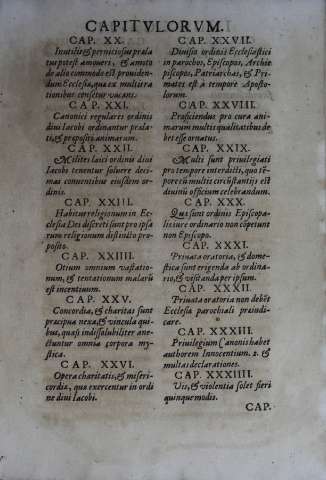 CAPITVLORVM.
CAP. XX.
Inutilis & perniciosus præla
tus potest amoueri, & amoto
de alio commode est prouiden-
dum Ecclesiæ, quæ ex multis ra
tionibus censetur vacans.
CAP. XXI.
Canonici regulares ordinis
diui Iacobi ordinantur præla-
ti, & præpositi animarum.
CAP. XXII.
Milites laici ordinis diui
Iacobi tenentur soluere deci-
mas conuentibus eiusdem or-
dinis.
CAP. XXIII.
Habitus religionum in Ec-
clesia Dei discreti sunt pro ipsa
rum religionum distincto pro-
posito.
CAP. XXIIII.
Otium omnium vastatio-
num, & tentationum malarũ
est incentiuum.
CAP. XXV.
Concordia, & charitas sunt
præcipua nexa, & vincula qui
bus, quasi indissolubiliter anne-
ctuntur omnia corpora my-
stica.
CAP. XXVI.
Opera charitatis, & miseri-
cordiæ, quæ exercentur in ordi
ne diui Iacobi.
CAP. XXVII.
Diuisio ordinis Ecclesiastici
in parochos, Episcopos, Archie
piscopos, Patriarchas, & Pri-
mates est à tempore Aposto-
lorum.
CAP. XXVIII.
Præficiendus pro cura ani-
marum multis qualitatibus de-
bet esse ornatus.
CAP. XXIX.
Multi sunt priuilegiati
pro tempore interdicti, quo tẽ-
pore cũ multis circũstantijs est
diuinũ officium celebrandum.
CAP. XXX.
Qui sunt ordinis Episcopa-
lis iure ordinario non competunt
non Episcopo.
CAP. XXXI.
Priuata oratoria, & dome-
stica sunt erigenda ab ordina-
rio, & visitanda per ipsum.
CAP. XXXII.
Priuata oratoria non debẽt
Ecclesiæ parochiali præiudi-
care.
CAP. XXXIII.
Priuilegium Canonis habet
authorem Innocentium. 2. &
multas declarationes.
CAP. XXXIIII.
Vis, & violentia solet fieri
quinque modis.
CAP.